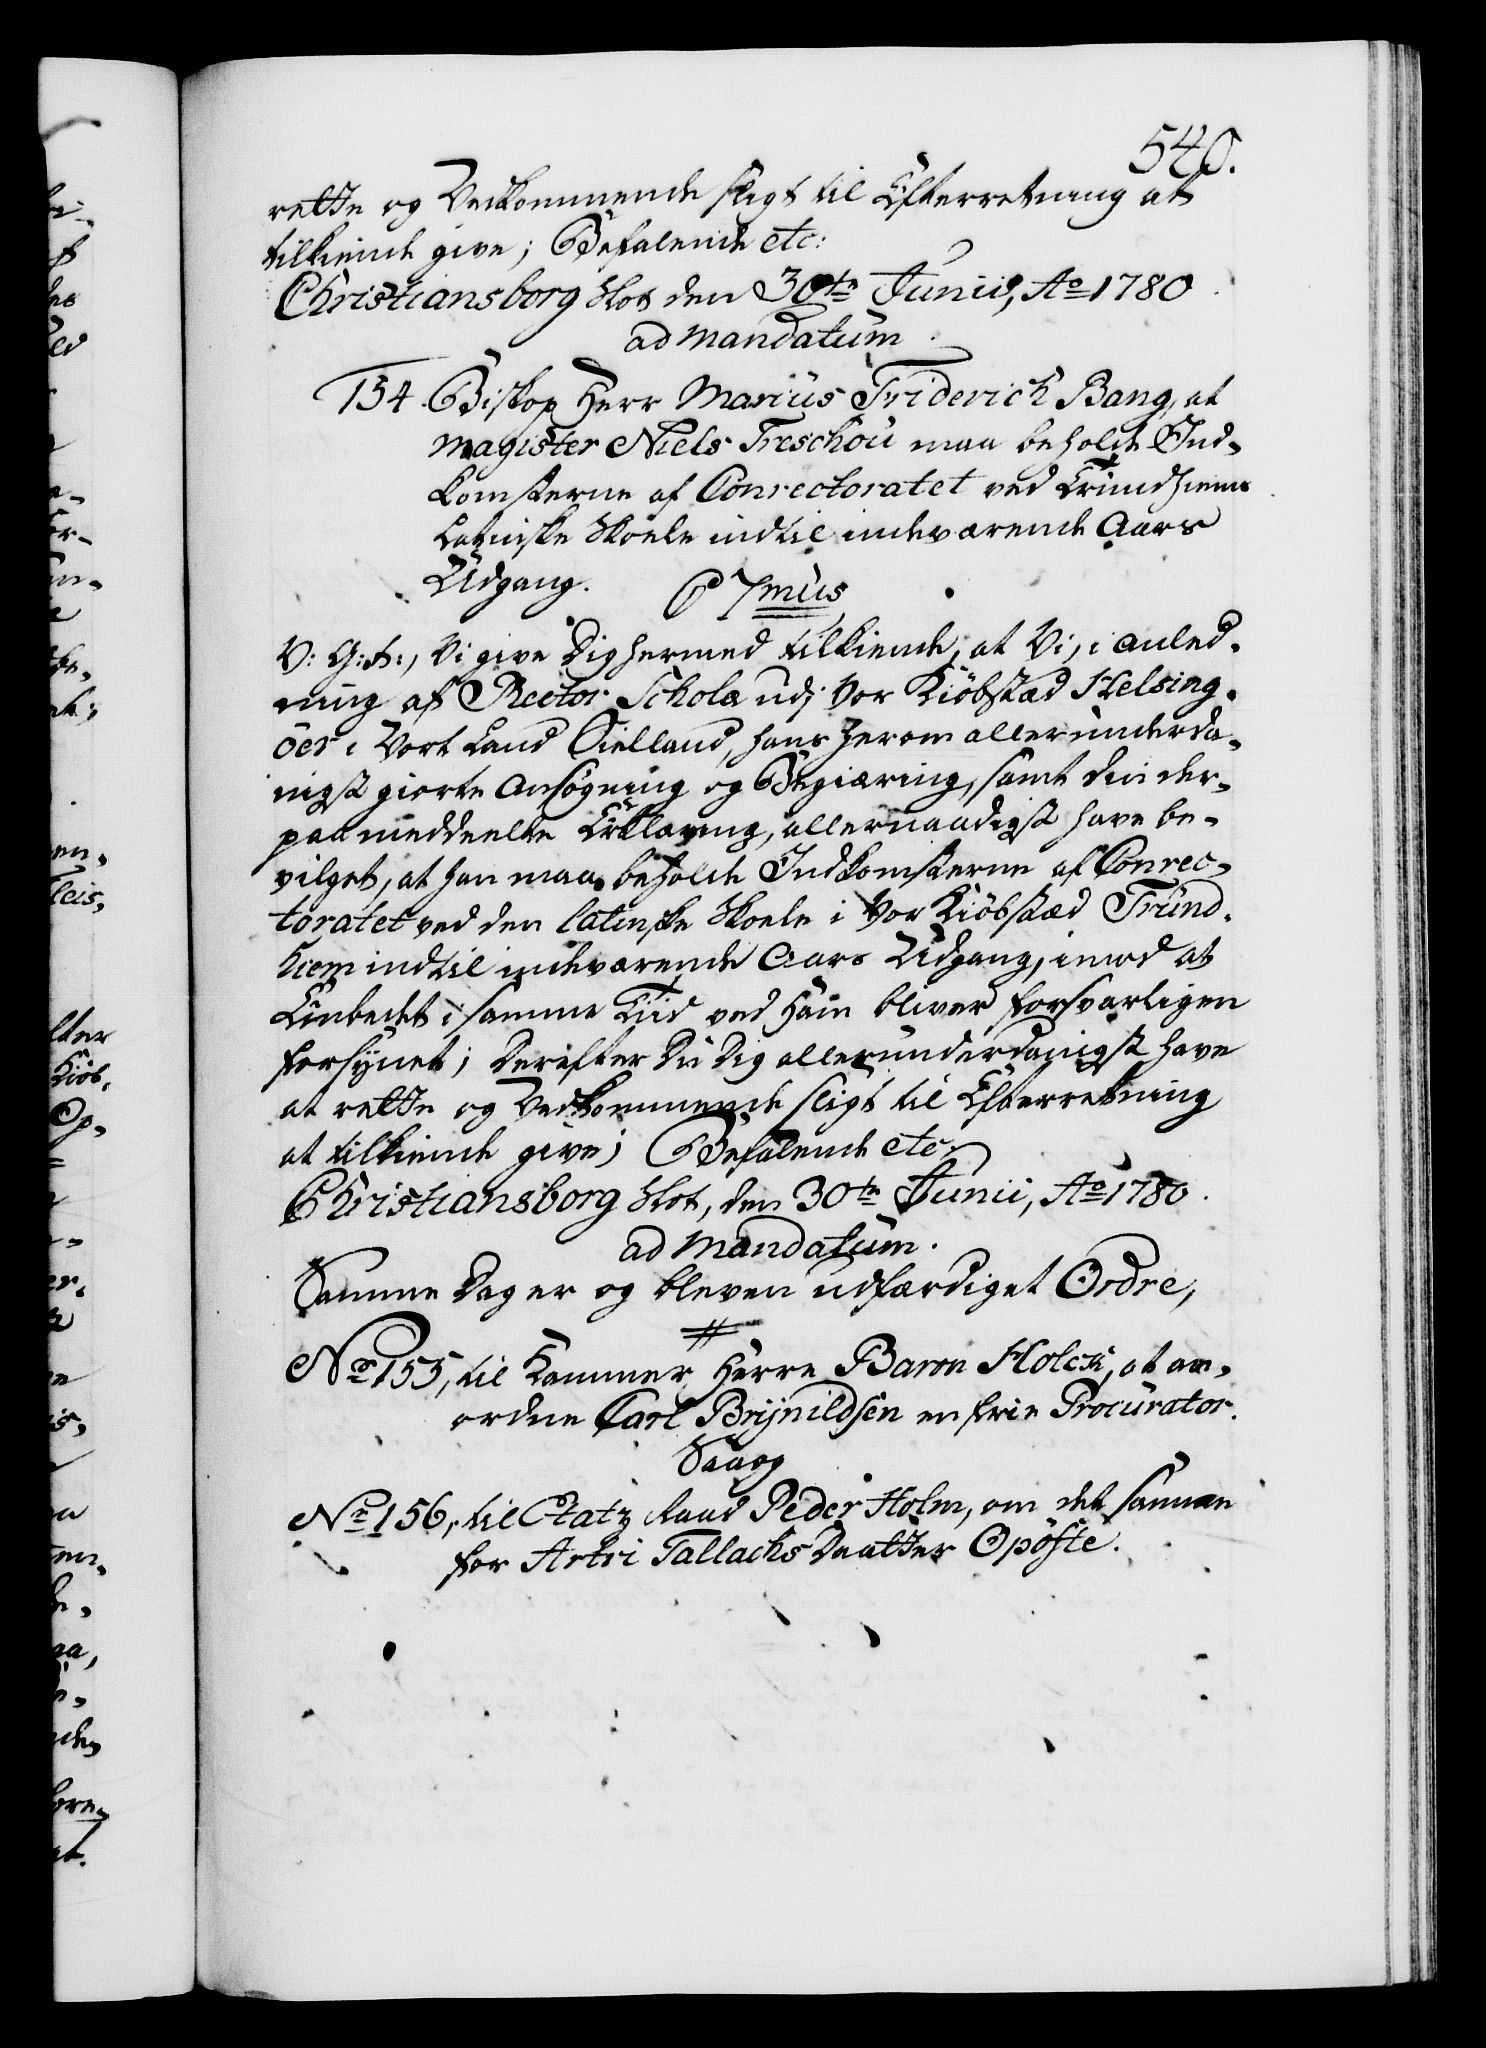 540.
rette og Vedkommende sligt til Efterretning at
tilkiende give; Befalende etc:
Christiansborg Slot den 30te Junii, Ao 1780
ad mandatum.
154. Biskop Herr Marius Friderich Bang, at
Magister Niels Treschou maa beholde Ind-
komsterne af Conrectoratet ved Trundhiems
Latinske Skoele indtil indeværende Aars
Udgang.
C 7mus
V: G: A:, Vi give Dig hermed tilkiende, at Vi, i Anled-
ning af Rector Scholæ udj Vor Kiöbstæd Helsing-
öer i Vort Land Sielland, hans herom allerunderda-
nigst giorte Ansögning og Begiæring, samt din der-
paa meddeelte Erklæring, allernaadigst have be-
vilget, at han maa beholde Indkomsterne af Conrec-
toratet ved den latinske Skoele i Vor Kiöbstæd Trund-
hiem indtil indeværende Aars Udgang, imod at
Embedet i samme Tiid ved Ham bliver forsvarligen
forsÿnet; Derefter Du Dig allerunderdanigst have
at rette og Vedkommende sligt til Efterretning
at tilkiende give; Befalende etc.
Christiansborg Slot, den 30te Junii, Ao 1780.
ad mandatum.
Samme Dag er og bleven udfærdiget Ordre,
No 155, til Kammer Herre Baron Holck, at an-
ordne Carl Brÿnildsen en frie Procurator.
Saa og
No 156, til Etatz Raad Peder Holm, om det samme
for Artri Tallachs Daatter Opöfte.